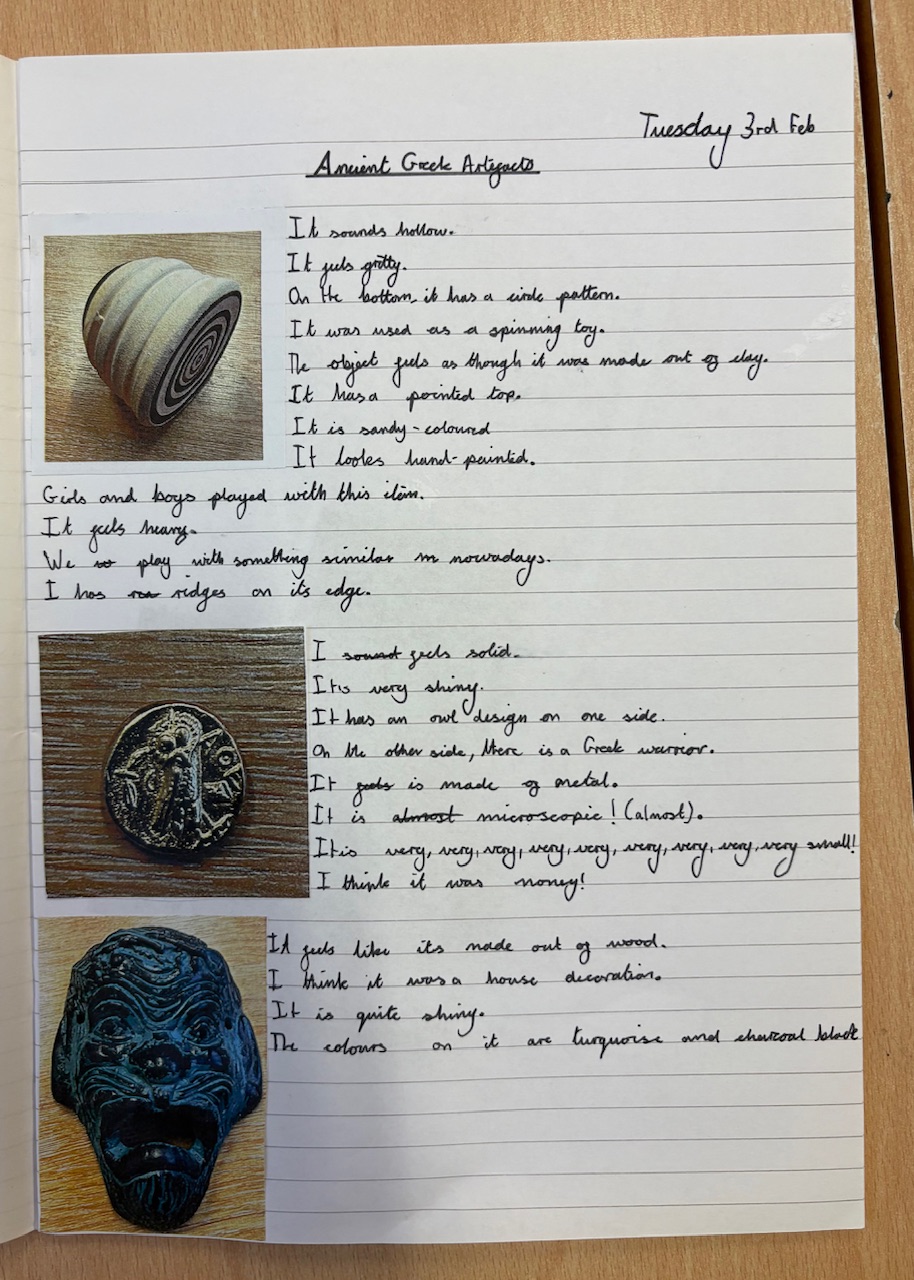 Tuesday 3rd Feb
Ancient Greek Artefacts
It sounds hollow.
It feels gritty.
On the bottom it has a circle pattern.
It was used as a spinning toy.
The object feels as though it was made out of clay.
It has a pointed top.
It is sandy-coloured
It looks hand-painted.
Girls and boys played with this item.
It feels heavy.
We play with something similar nowadays.
I has ridges on it's edge.
I feels solid.
It is very shiny.
It has an owl design on one side.
On the other side, there is a Greek warrior.
It is made of metal.
It is microscopic! (almost).
It is very, very, very, very, very, very, very, very, very small!
I think it was money!
It feels like its made out of wood.
I think it was a house decoration.
It is quite shiny.
The colours on it are turquoise and charcoal black